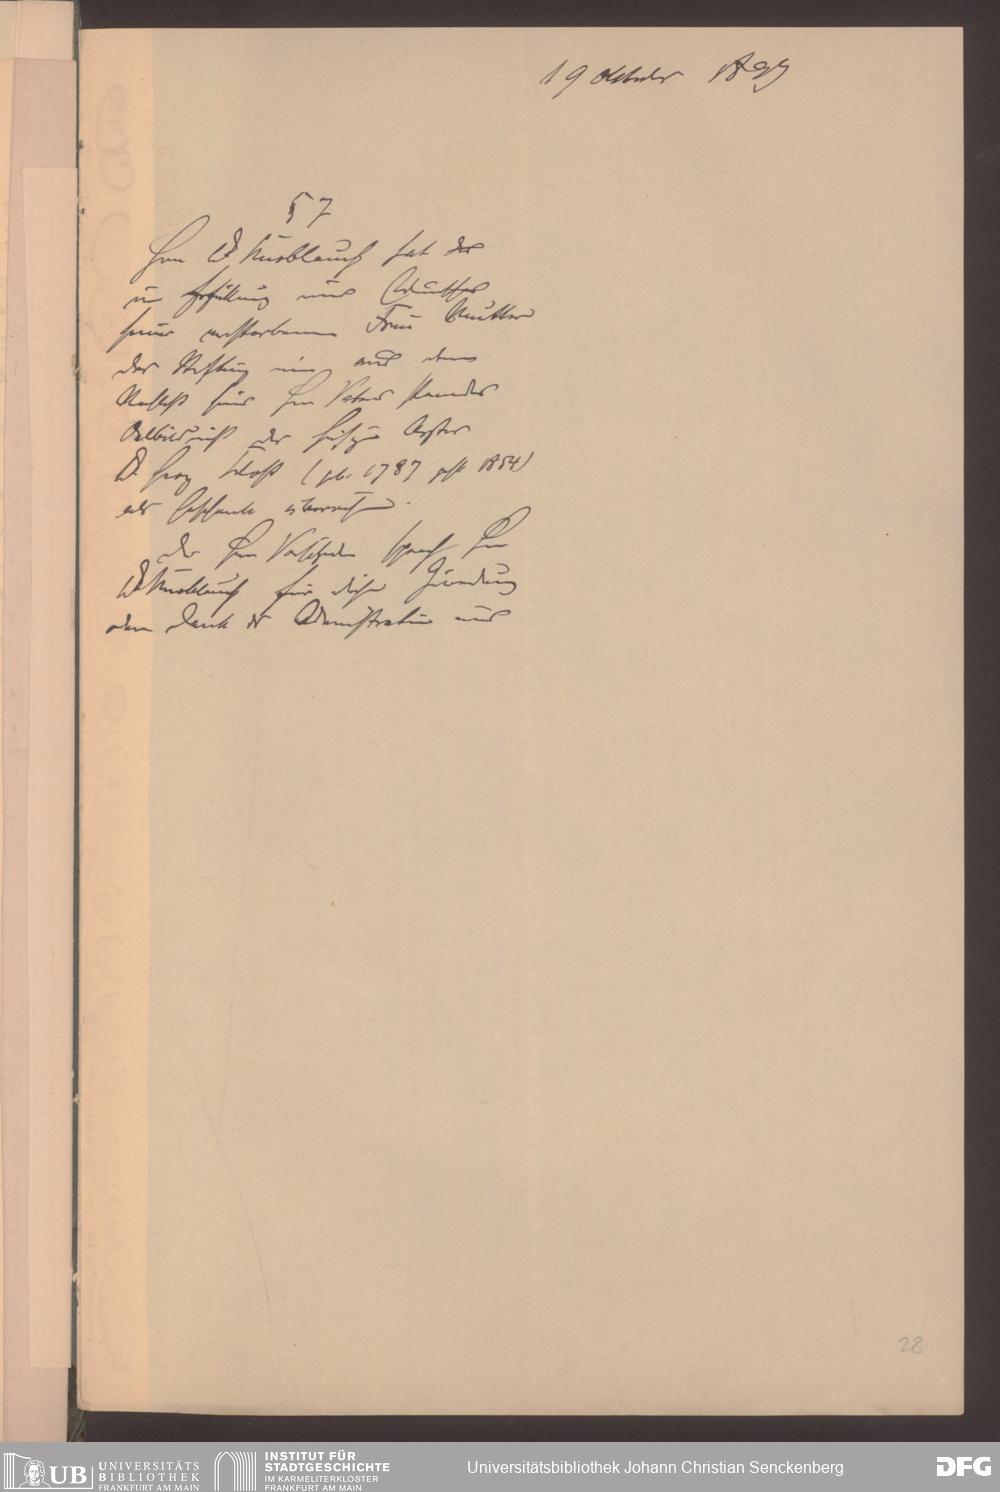 19 Oktober 1899
§ 7
Herr Dr Knoblauch hat der
in Erfüllung eines Wunsches
seiner verstorbenen Frau Mutter
der Stiftung ein aus dem
Nachlaß seines Herrn Vaters stammendes
Oelbildniß des hiesigen Arztes
Dr Georg Kloß (geb. 1787 gest 1854)
als Geschenk überreicht.
Der Herr Vorsitzende sprach Herrn
Dr Knoblauch für diese Zuwendung
den Dank der Administration aus
28
UB UNIVERSITÄTS
BIBLIOTHEK
FRANKFURT AM MAIN
INSTITUT FÜR
STADTGESCHICHTE
IM KARMELITERKLOSTER
FRANKFURT AM MAIN
Universitätsbibliothek Johann Christian Senckenberg
DFG